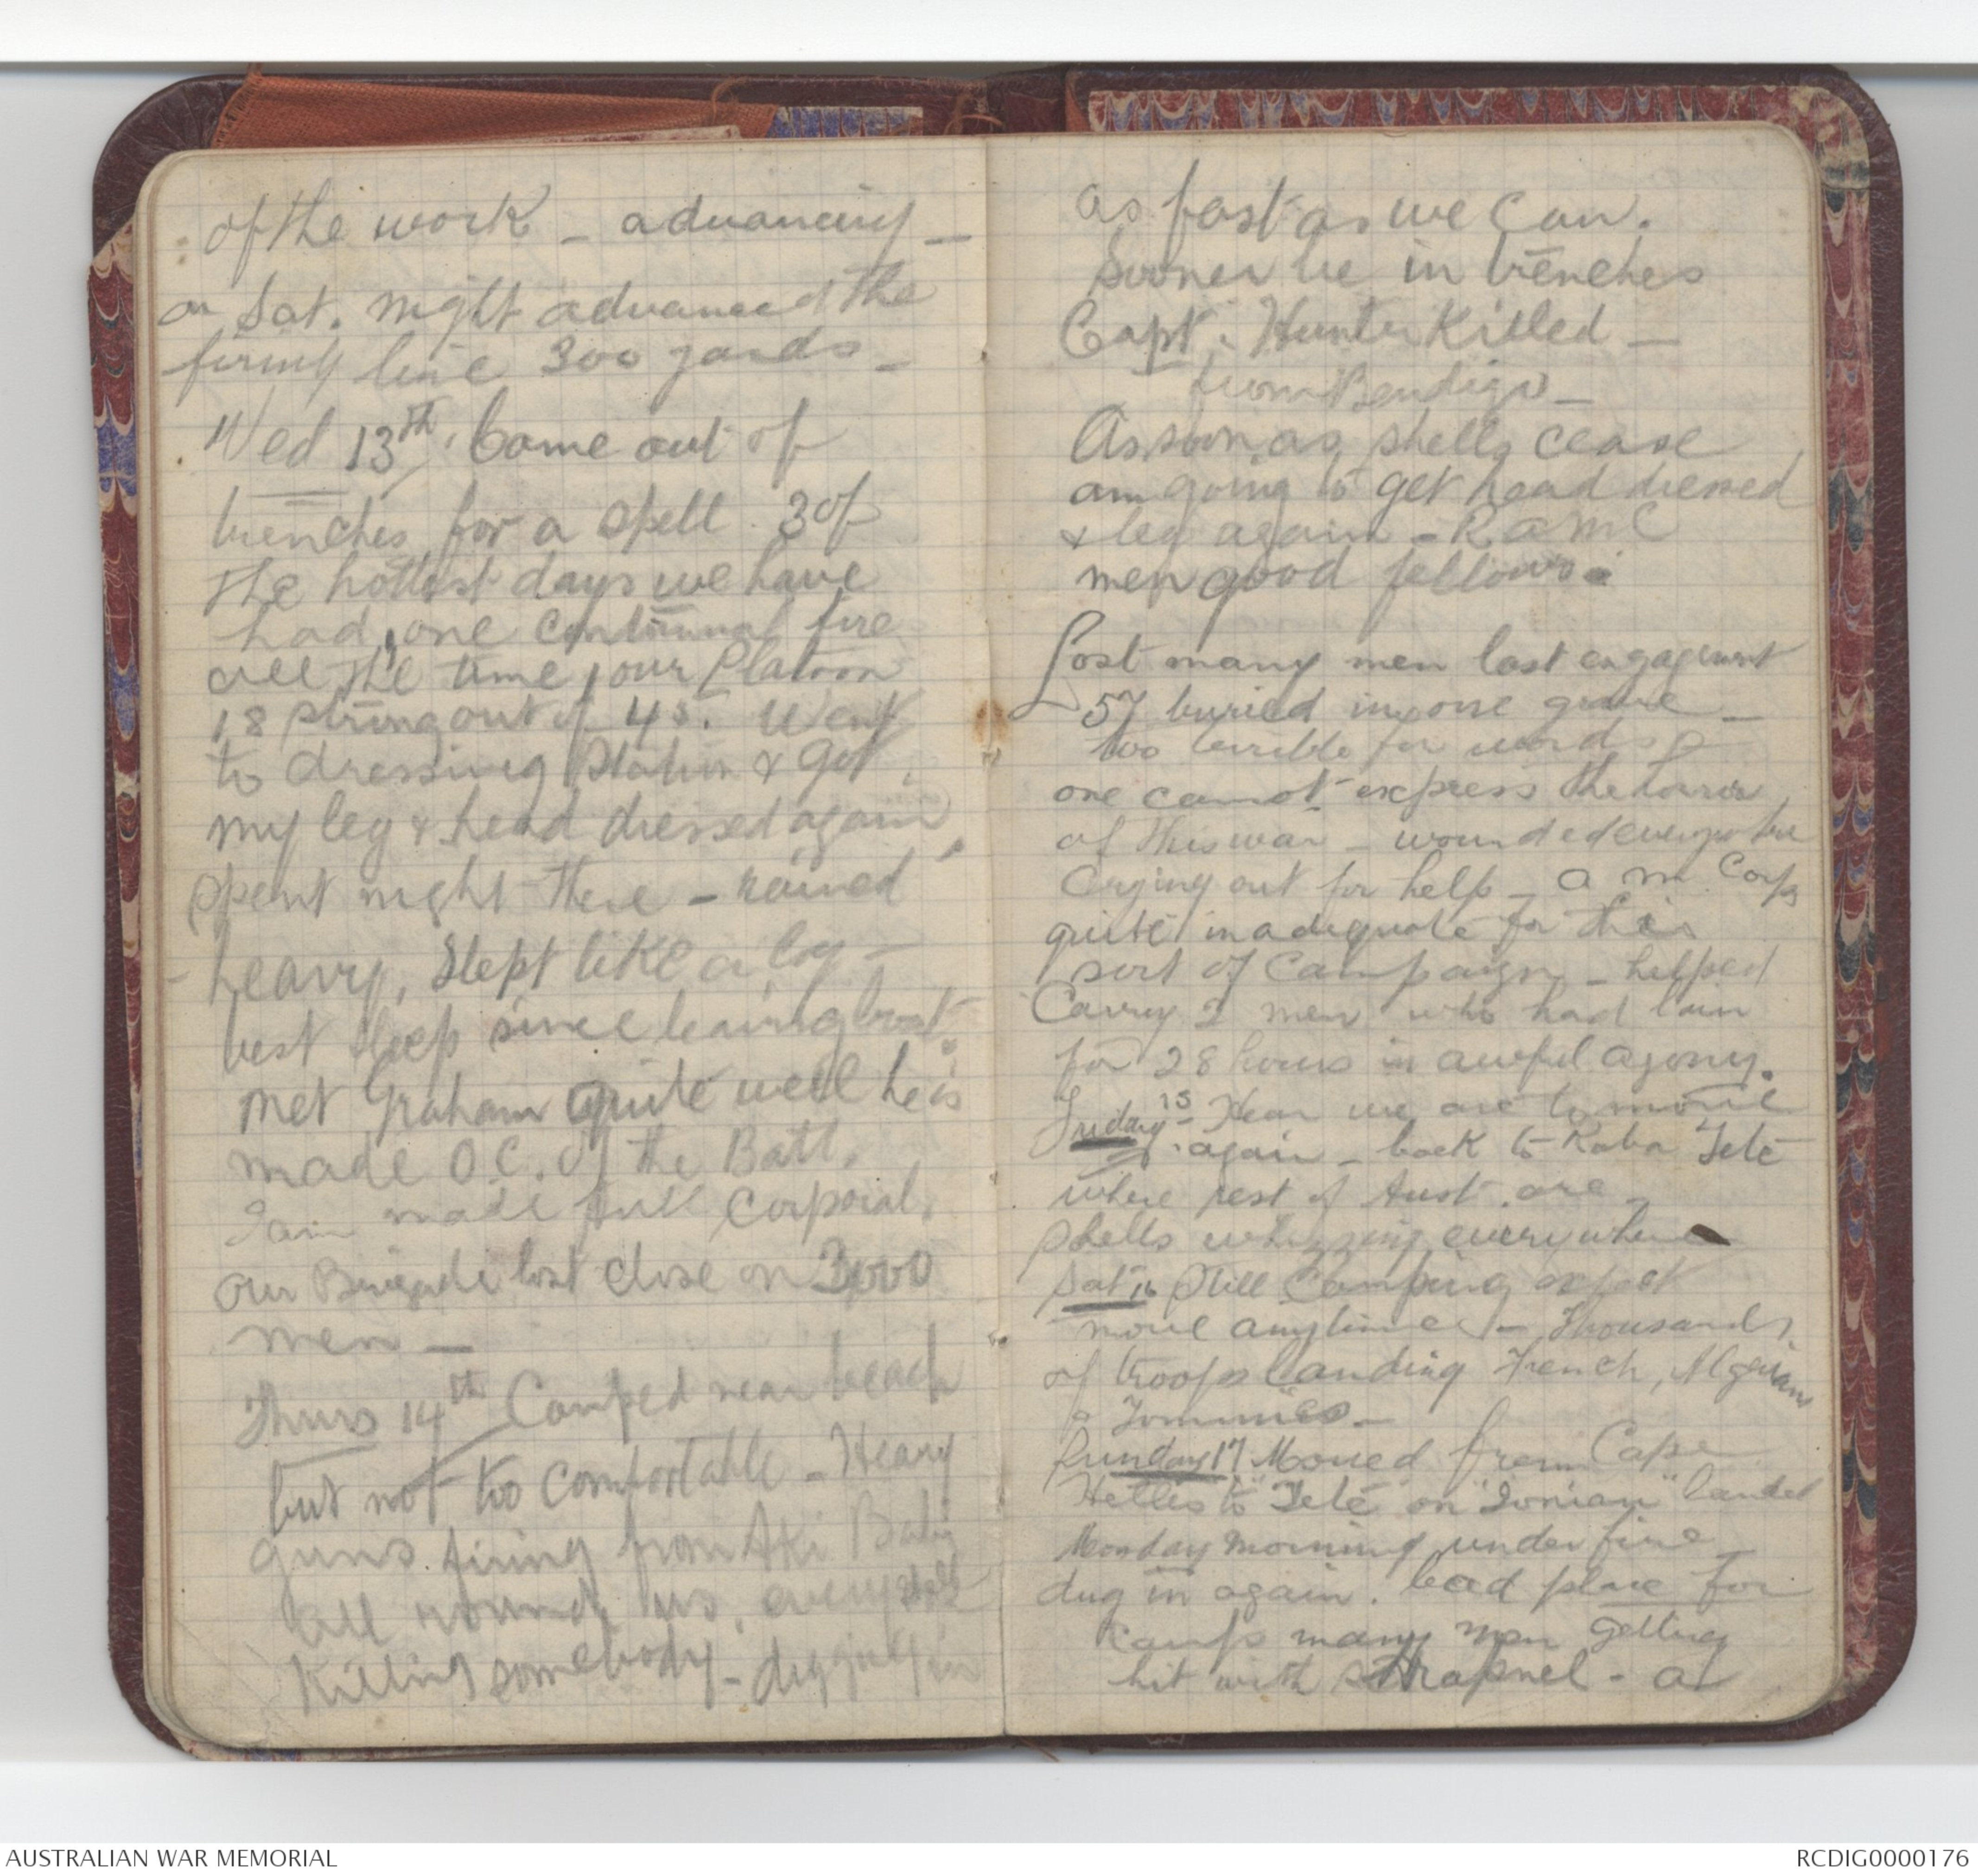 of the work - advancing -
on Sat. night advanced the
firing line 300 yards -
Wed 13th. Come out of
trenches for a spell. 3 of
the hottest days we have
had, one continual fire
all the time, our Platoon
18 string out of 45. Went
to dressing Station & got
my leg & head dressed again
spent night there - rained
heavy, slept like a log -
best sleep since leaving boat.
Met Graham quite well he is
made O.C. of the Batt.
I am made full Corporal.
Our Brigade lost close on 3000
men -
Thurs 14th Camped near beach
but not too comfortable - Heavy
guns firing from Aki Baba
all round us, every shell
killing somebody - digging in
as fast as we can.
Sooner be in trenches
Capt. Hunter Killed -
from Bendigo -
As soon as shells cease
am going to get head dressed
& leg again - RAMC
men good fellows.
Lost many men last engagement
57 buried in one grave -
too terrible for words
one cannot express the horror
of this war - wounded everywhere
crying out for help - A M. Corps
quite inadequate for this
sort of campaign - helped
Carry 2 men who had lain
for 28 hours in awful agony.
Friday 15 - Hear we are to move
again - back to Kaba Tete
where rest of Aust. are -
shells whizzing everywhere
Sat 16 Still Camping expect
move anytime - Thousands
of troops landing French, Algerians
& Tommies -
Sunday 17 Moved from Cape
Helles to "Tete" on "Ionian" landed
Monday morning under fire -
dug in again. bad place for
camp many men getting
hit with shrapnel - a